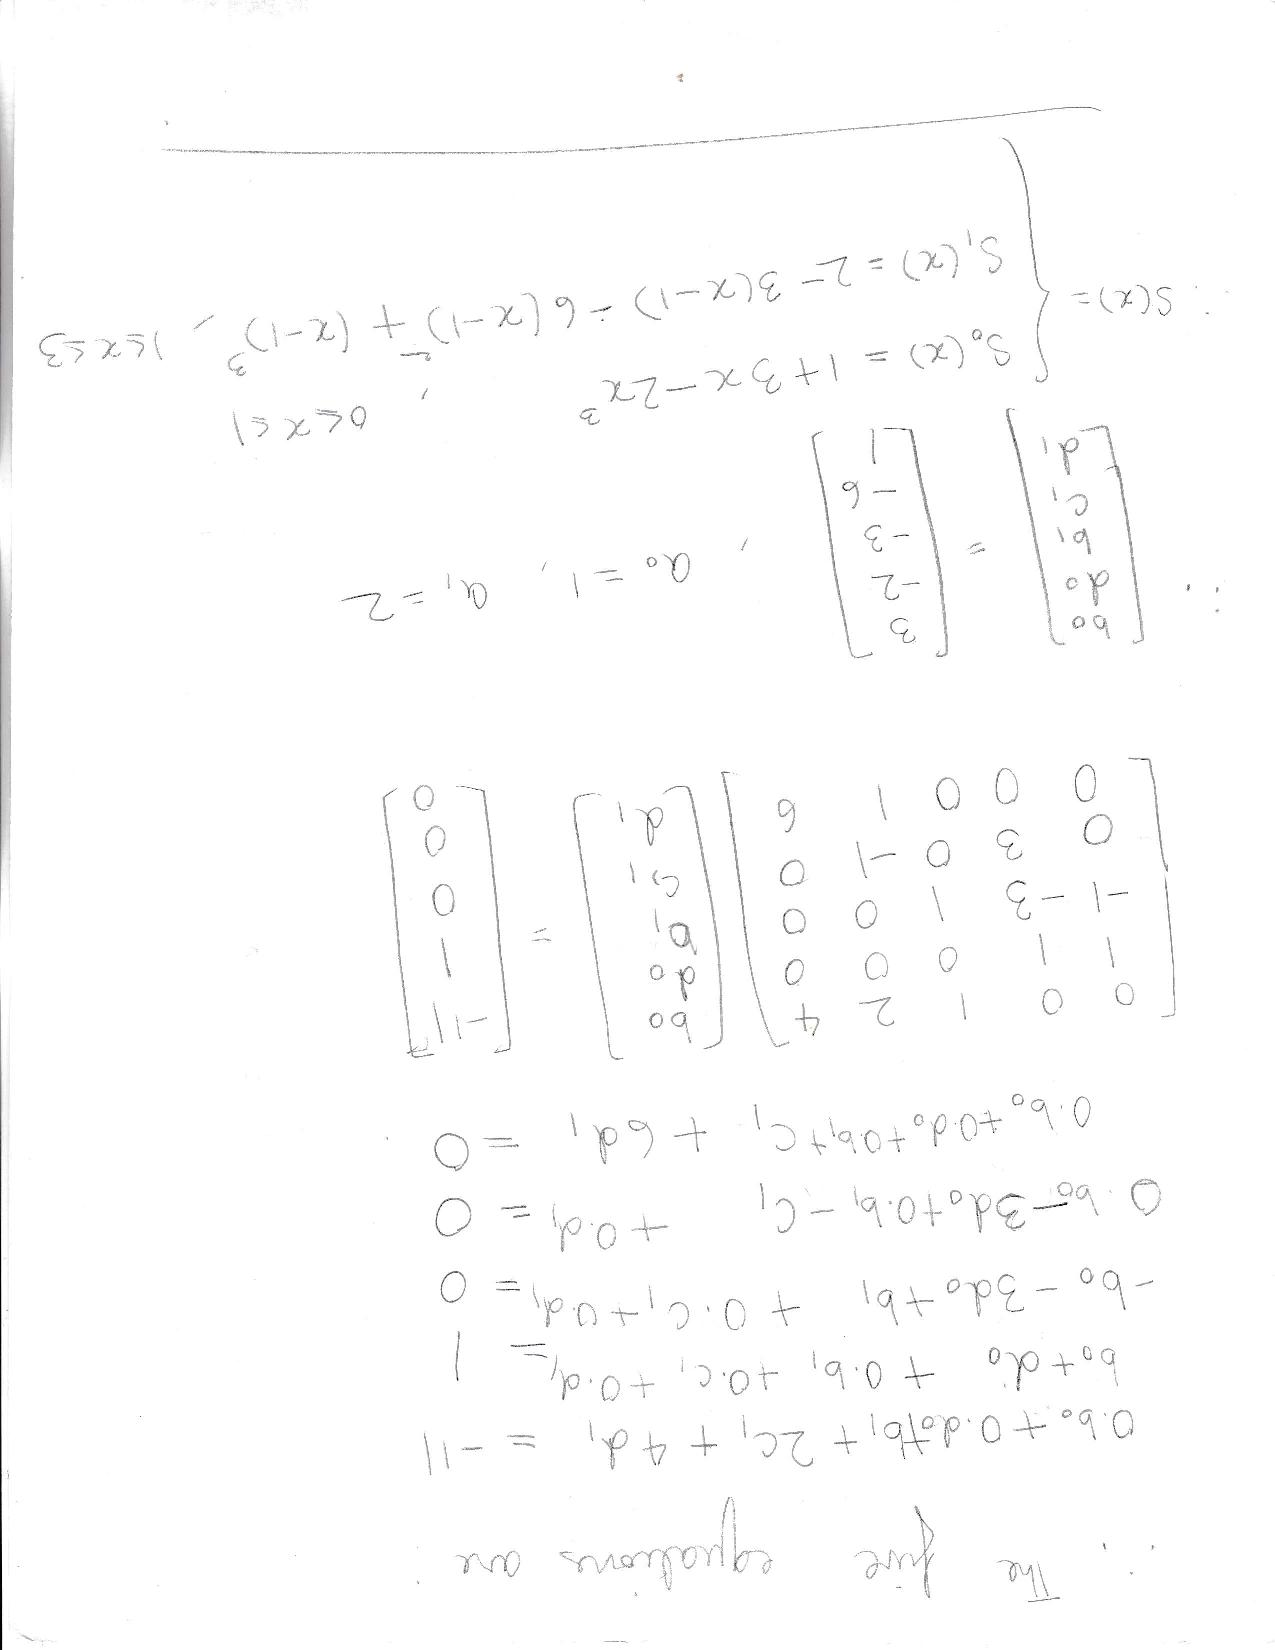 ∴ The five equations are :
0.b₀ + 0.d₀ + b₁ + 2c₁ + 4d₁ = -11
b₀ + d₀ + 0.b₁ + 0.c₁ + 0.d₁ = 1
-b₀ - 3d₀ + b₁ + 0.c₁ + 0.d₁ = 0
0.b₀ - 3d₀ + 0.b₁ - c₁ + 0.d₁ = 0
0.b₀ + 0.d₀ + 0b₁ + c₁ + 6d₁ = 0
[0 0 1 2 4] [b₀] [-11]
[1 1 0 0 0] [d₀] [1]
[-1 -3 1 0 0] [b₁] = [0]
[0 3 0 -1 0] [c₁] [0]
[0 0 0 1 6] [d₁] [0]
∴ [b₀ d₀ b₁ c₁ d₁] = [3 -2 -3 -6 1] , a₀ = 1, a₁ = 2
∴ S(x) = { S₀(x) = 1 + 3x - 2x³ , 0 ≤ x ≤ 1
S₁(x) = 2 - 3(x-1) - 6(x-1)² + (x-1)³ , 1 ≤ x ≤ 3